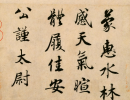 蒙惠水林
感天氣暄
體履佳安
公謹太尉